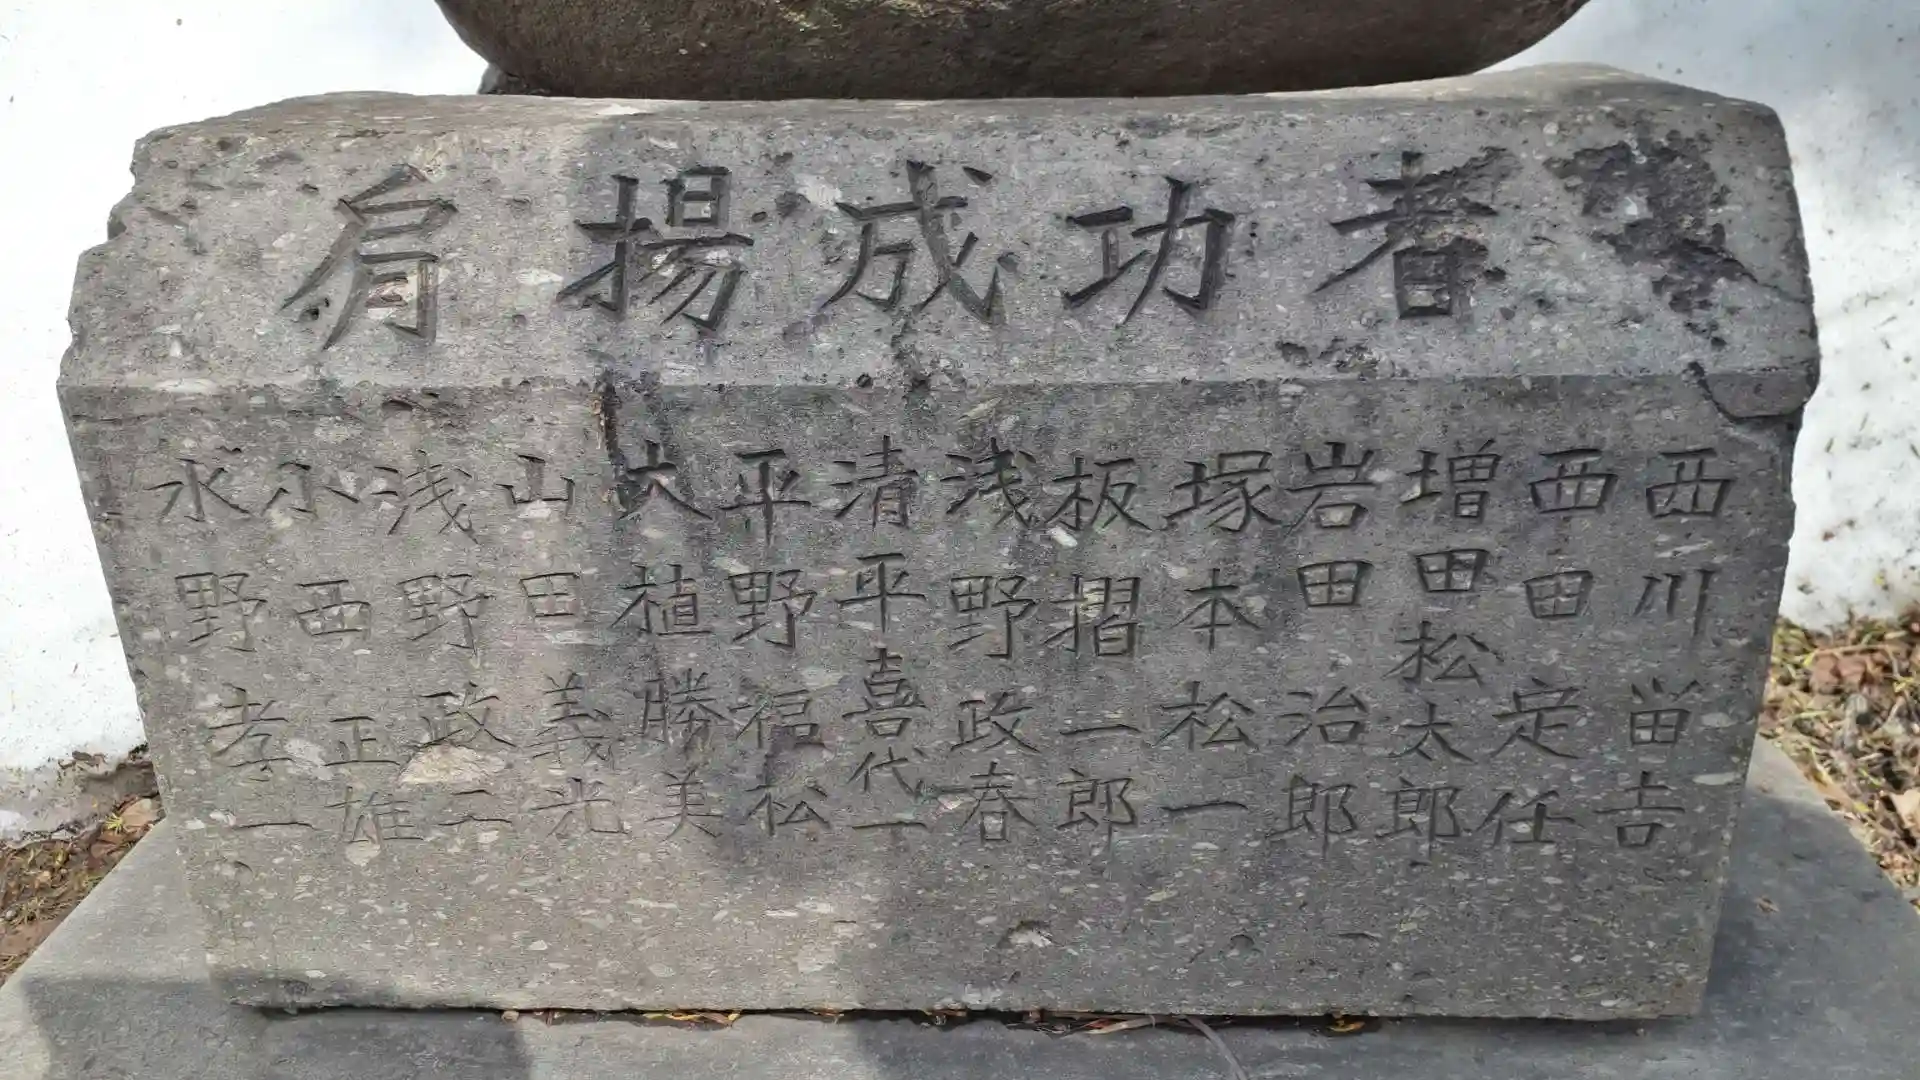 肩揚成功者
西川畄吉
西田定任
増田松太郎
岩田治郎
塚本松一
板摺二郎
浅野政春
清平喜代一
平野福松
大植勝美
山田義光
浅野政二
小西正雄
永野孝一